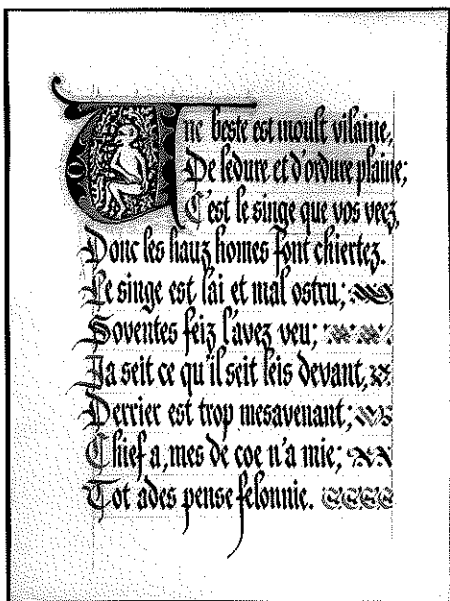 Une beste est moult vilaine,
De ledure et d'ordure plaine;
C'est le singe que vos veez,
Donc les hauz homes font chiertez.
Le singe est lai et mal ostru;
Soventes feiz l'avez veu;
Ja seit ce qu'il seit leis devant,
Derrier est trop mesavenant;
Chief a, mes de coe n'a mie;
Tot ades pense felonnie.